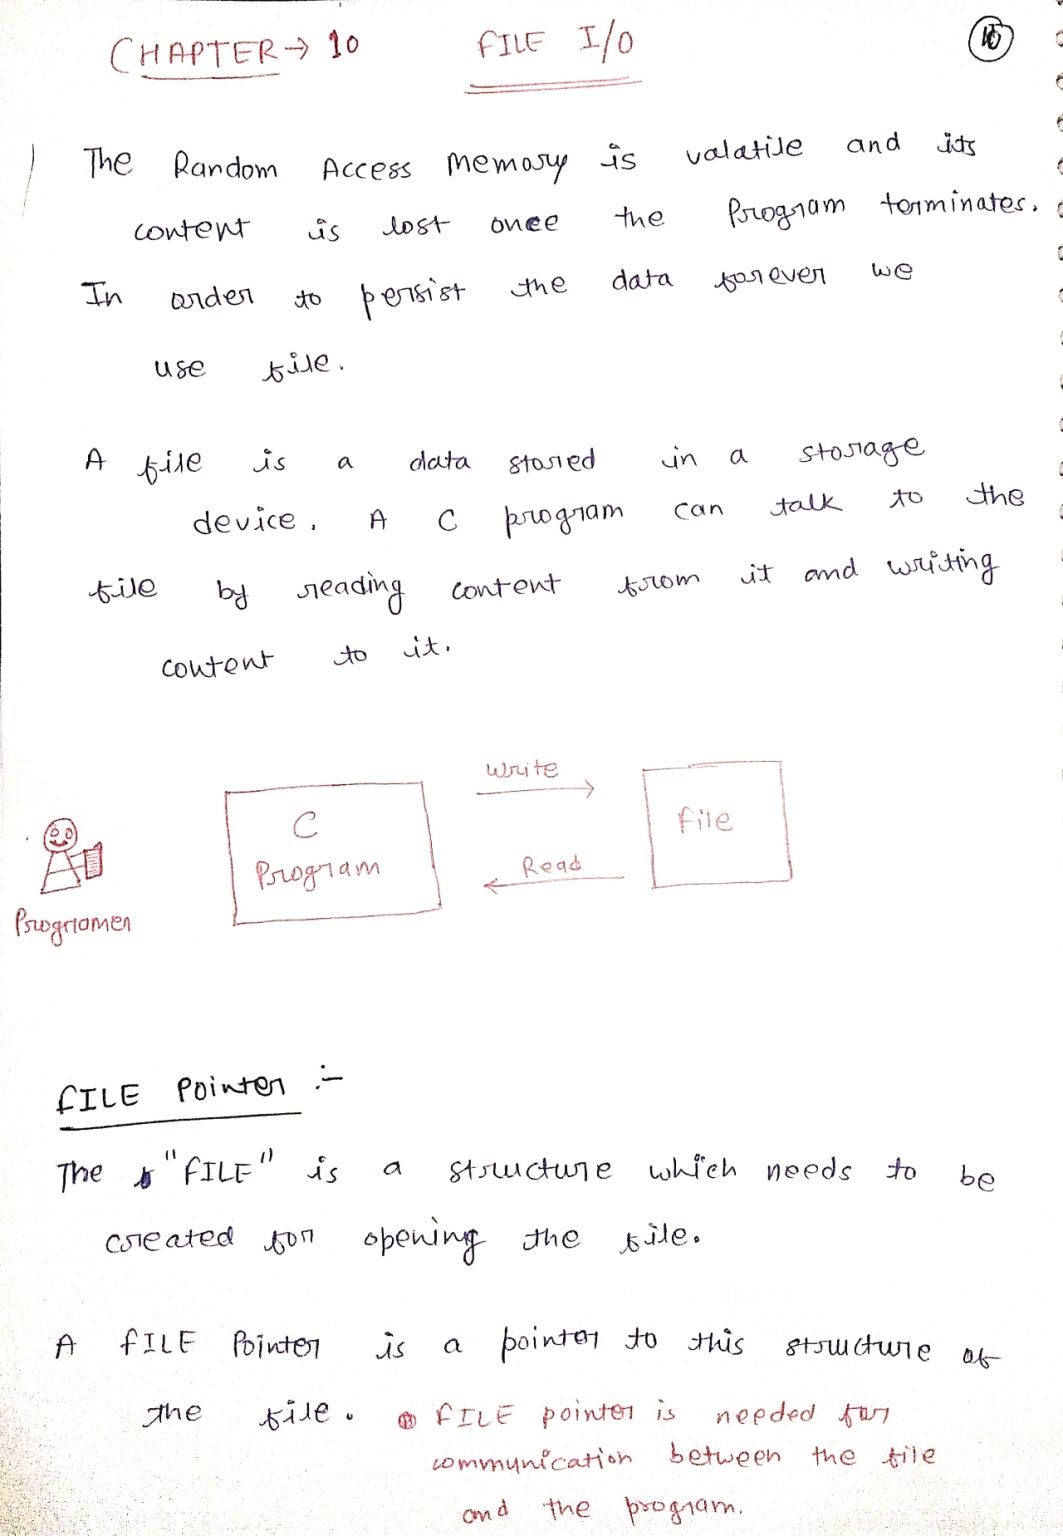 CHAPTER → 10 FILE I/O
The Random Access Memory is valatile and its
content is lost once the Program terminates.
In order to persist the data forever we
use file.
A file is a data stored in a storage
device. A C program can talk to the
file by reading content from it and writing
content to it.
Write
C
Program
File
Read
Programer
FILE Pointer :-
The "FILE" is a structure which needs to be
created for opening the file.
A FILE Pointer is a pointer to this structure of
the file. FILE pointer is needed for
communication between the file
and the program.